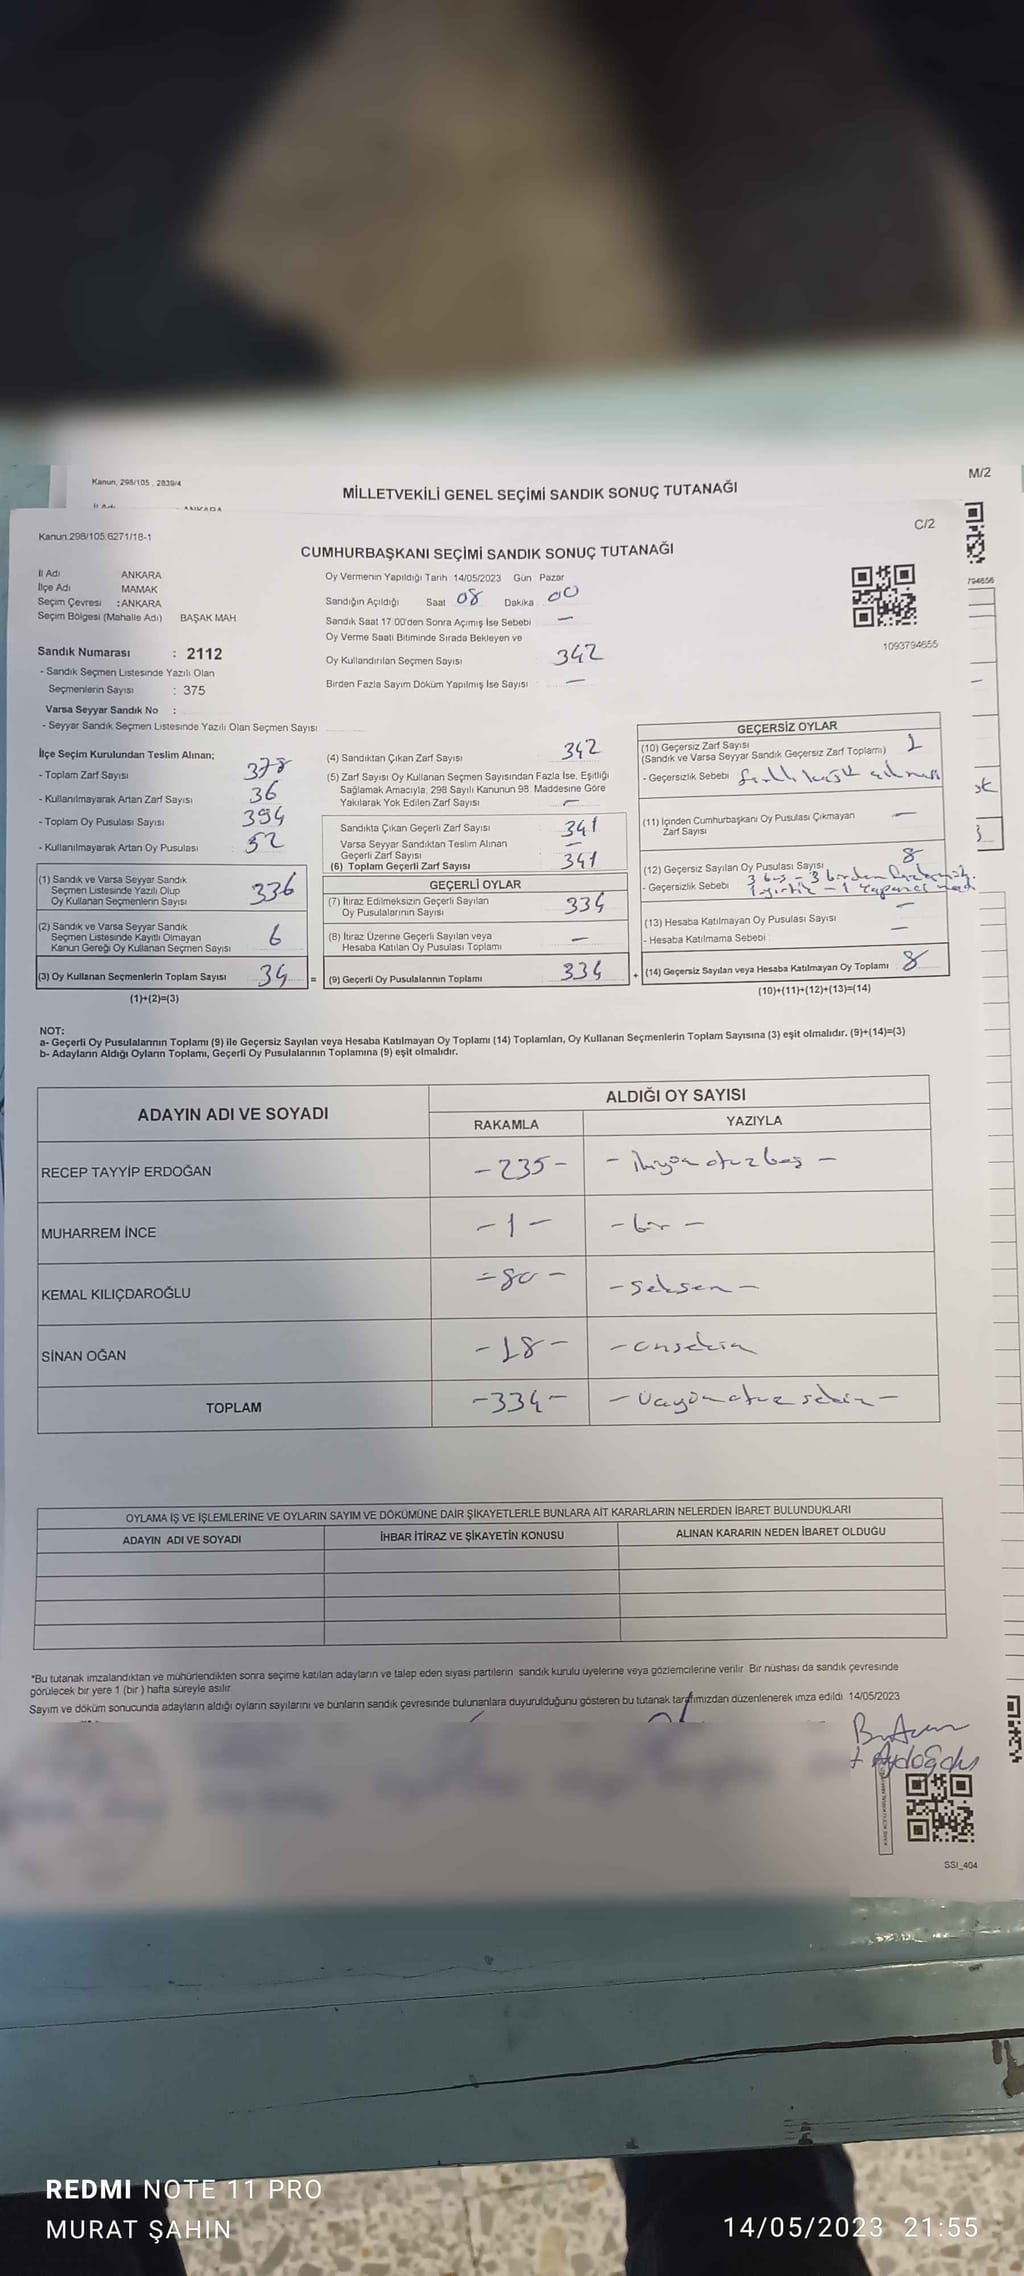 M/2
Kanun, 298/105 , 2839/4
MİLLETVEKİLİ GENEL SEÇİMİ SANDIK SONUÇ TUTANAĞI
İl Adı ANKARA
C/2
Kanun:298/105,6271/18-1
CUMHURBAŞKANI SEÇİMİ SANDIK SONUÇ TUTANAĞI
İl Adı ANKARA
İlçe Adı MAMAK
Seçim Çevresi : ANKARA
Seçim Bölgesi (Mahalle Adı) BAŞAK MAH
Sandık Numarası : 2112
- Sandık Seçmen Listesinde Yazılı Olan
Seçmenlerin Sayısı : 375
Varsa Seyyar Sandık No :
- Seyyar Sandık Seçmen Listesinde Yazılı Olan Seçmen Sayısı
Oy Vermenin Yapıldığı Tarih 14/05/2023 Gün Pazar
Sandığın Açıldığı Saat 08 Dakika 00
Sandık Saat 17:00'den Sonra Açımış İse Sebebi —
Oy Verme Saati Bitiminde Sırada Bekleyen ve
Oy Kullandırılan Seçmen Sayısı 342
Birden Fazla Sayım Döküm Yapılmış İse Sayısı —
794656
1093794655
İlçe Seçim Kurulundan Teslim Alınan;
- Toplam Zarf Sayısı 378
- Kullanılmayarak Artan Zarf Sayısı 36
- Toplam Oy Pusulası Sayısı 394
- Kullanılmayarak Artan Oy Pusulası 52
(1) Sandık ve Varsa Seyyar Sandık
Seçmen Listesinde Yazılı Olup
Oy Kullanan Seçmenlerin Sayısı 336
(2) Sandık ve Varsa Seyyar Sandık
Seçmen Listesinde Kayıtlı Olmayan
Kanun Gereği Oy Kullanan Seçmen Sayısı 6
(3) Oy Kullanan Seçmenlerin Toplam Sayısı 34 =
(1)+(2)=(3)
(4) Sandıktan Çıkan Zarf Sayısı 342
(5) Zarf Sayısı Oy Kullanan Seçmen Sayısından Fazla İse, Eşitliği
Sağlamak Amacıyla, 298 Sayılı Kanunun 98. Maddesine Göre
Yakılarak Yok Edilen Zarf Sayısı —
Sandıkta Çıkan Geçerli Zarf Sayısı 341
Varsa Seyyar Sandıktan Teslim Alınan
Geçerli Zarf Sayısı —
(6) Toplam Geçerli Zarf Sayısı 341
GEÇERLİ OYLAR
(7) İtiraz Edilmeksizin Geçerli Sayılan
Oy Pusulalarının Sayısı 334
(8) İtiraz Üzerine Geçerli Sayılan veya
Hesaba Katılan Oy Pusulası Toplamı —
(9) Geçerli Oy Pusulalarının Toplamı 334 +
GEÇERSİZ OYLAR
(10) Geçersiz Zarf Sayısı 1
(Sandık ve Varsa Seyyar Sandık Geçersiz Zarf Toplamı)
- Geçersizlik Sebebi
(11) İçinden Cumhurbaşkanı Oy Pusulası Çıkmayan
Zarf Sayısı —
(12) Geçersiz Sayılan Oy Pusulası Sayısı 8
- Geçersizlik Sebebi 3 boş - 3 birden fazla
1 yırtık - 1
(13) Hesaba Katılmayan Oy Pusulası Sayısı —
- Hesaba Katılmama Sebebi —
(14) Geçersiz Sayılan veya Hesaba Katılmayan Oy Toplamı 8
(10)+(11)+(12)+(13)=(14)
NOT:
a- Geçerli Oy Pusulalarının Toplamı (9) ile Geçersiz Sayılan veya Hesaba Katılmayan Oy Toplamı (14) Toplamları, Oy Kullanan Seçmenlerin Toplam Sayısına (3) eşit olmalıdır. (9)+(14)=(3)
b- Adayların Aldığı Oyların Toplamı, Geçerli Oy Pusulalarının Toplamına (9) eşit olmalıdır.
ADAYIN ADI VE SOYADI ALDIĞI OY SAYISI
RAKAMLA YAZIYLA
RECEP TAYYİP ERDOĞAN -235- - ikiyüz otuz beş -
MUHARREM İNCE -1- -bir-
KEMAL KILIÇDAROĞLU =80- -seksen-
SİNAN OĞAN -18- -onsekiz
TOPLAM -334- -üçyüz otuz
OYLAMA İŞ VE İŞLEMLERİNE VE OYLARIN SAYIM VE DÖKÜMÜNE DAİR ŞİKAYETLERLE BUNLARA AİT KARARLARIN NELERDEN İBARET BULUNDUKLARI
ADAYIN ADI VE SOYADI İHBAR İTİRAZ VE ŞİKAYETİN KONUSU ALINAN KARARIN NEDEN İBARET OLDUĞU
*Bu tutanak imzalandıktan ve mühürlendikten sonra seçime katılan adayların ve talep eden siyasi partilerin sandık kurulu üyelerine veya gözlemcilerine verilir. Bir nüshası da sandık çevresinde
görülecek bir yere 1 (bir) hafta süreyle asılır.
Sayım ve döküm sonucunda adayların aldığı oyların sayılarını ve bunların sandık çevresinde bulunanlara duyurulduğunu gösteren bu tutanak tarafımızdan düzenlenerek imza edildi 14/05/2023
Aydoğdu
SSI_404
REDMI NOTE 11 PRO
MURAT ŞAHIN
14/05/2023 21:55